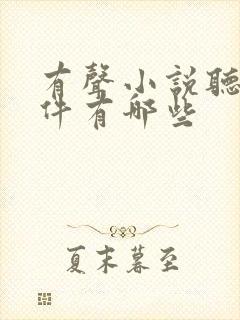 有聲小說聽
件有哪些
夏末暮至